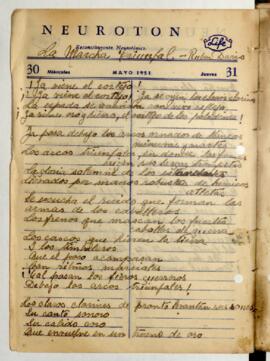 NEUROTON
Life
Reconstituyente Neurotónico
La Marcha Triunfal - Rubén Darío
30 Miércoles MAYO 1951 Jueves 31
¡Ya viene el cortejo!
¡Ya viene el cortejo! Ya se oyen los claros clarines
La espada se anuncia con vivo reflejo
Ya pasa debajo los arcos ornados de blancas
Los arcos triunfales en donde las
La gloria solemne de los estandartes
llevados por manos robustas de heroicos
atletas
Se escucha el ruido que forman las
armas de los caballeros
Los frenos que mascan los fuertes
caballos de guerra
Los cascos que hieren la tierra
I los timbaleros
Que el paso acompasan
Con ritmos marciales
¡Tal pasan los fieros guerreros
Debajo los arcos triunfales!
Los claros clarines de pronto levantan sus sones
Su canto sonoro
Su cálido coro
Que envuelve en un trueno de oro